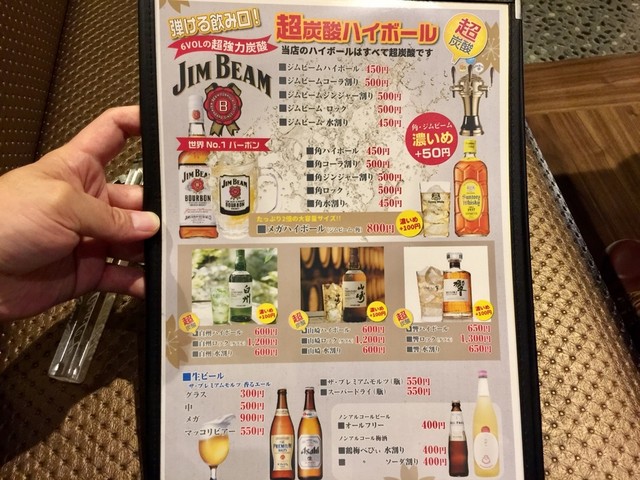 弾ける飲み口!
6VOLの超強力炭酸
超炭酸ハイボール
当店のハイボールはすべて超炭酸です
超炭酸
JIM BEAM
B
世界 No.1 バーボン
■ジムビームハイボール 450円
■ジムビームコーラ割り 500円
■ジムビームジンジャー割り 500円
■ジムビーム ロック 500円
■ジムビーム 水割り 450円
角・ジムビーム
濃いめ
+50円
■角ハイボール 450円
■角コーラ割り 500円
■角ジンジャー割り 500円
■角ロック 500円
■角水割り 450円
JIM BEAM
BOURBON
JIM BEAM
BOURBON
Suntory
Whisky
たっぷり2倍の大容量サイズ!!
■メガハイボール(ジムビーム・角) 800円
濃いめ
+100円
白州
超炭酸
濃いめ
+100円
■白州ハイボール 600円
■白州ロック 1,200円
■白州 水割り 600円
山崎
超炭酸
濃いめ
+100円
■山崎ハイボール 600円
■山崎ロック 1,200円
■山崎 水割り 600円
響
超炭酸
濃いめ
+100円
■響ハイボール 650円
■響ロック 1,300円
■響 水割り 650円
■生ビール
ザ・プレミアムモルツ 香るエール
グラス 300円
中 500円
メガ 900円
マッコリビアー 550円
PREMIUM
Asahi
■ザ・プレミアムモルツ(瓶) 550円
■スーパードライ(瓶) 550円
ノンアルコールビール
■オールフリー 400円
ノンアルコール梅酒
■鶴梅べびぃ 水割り 400円
■ 〃 ソーダ割り 400円